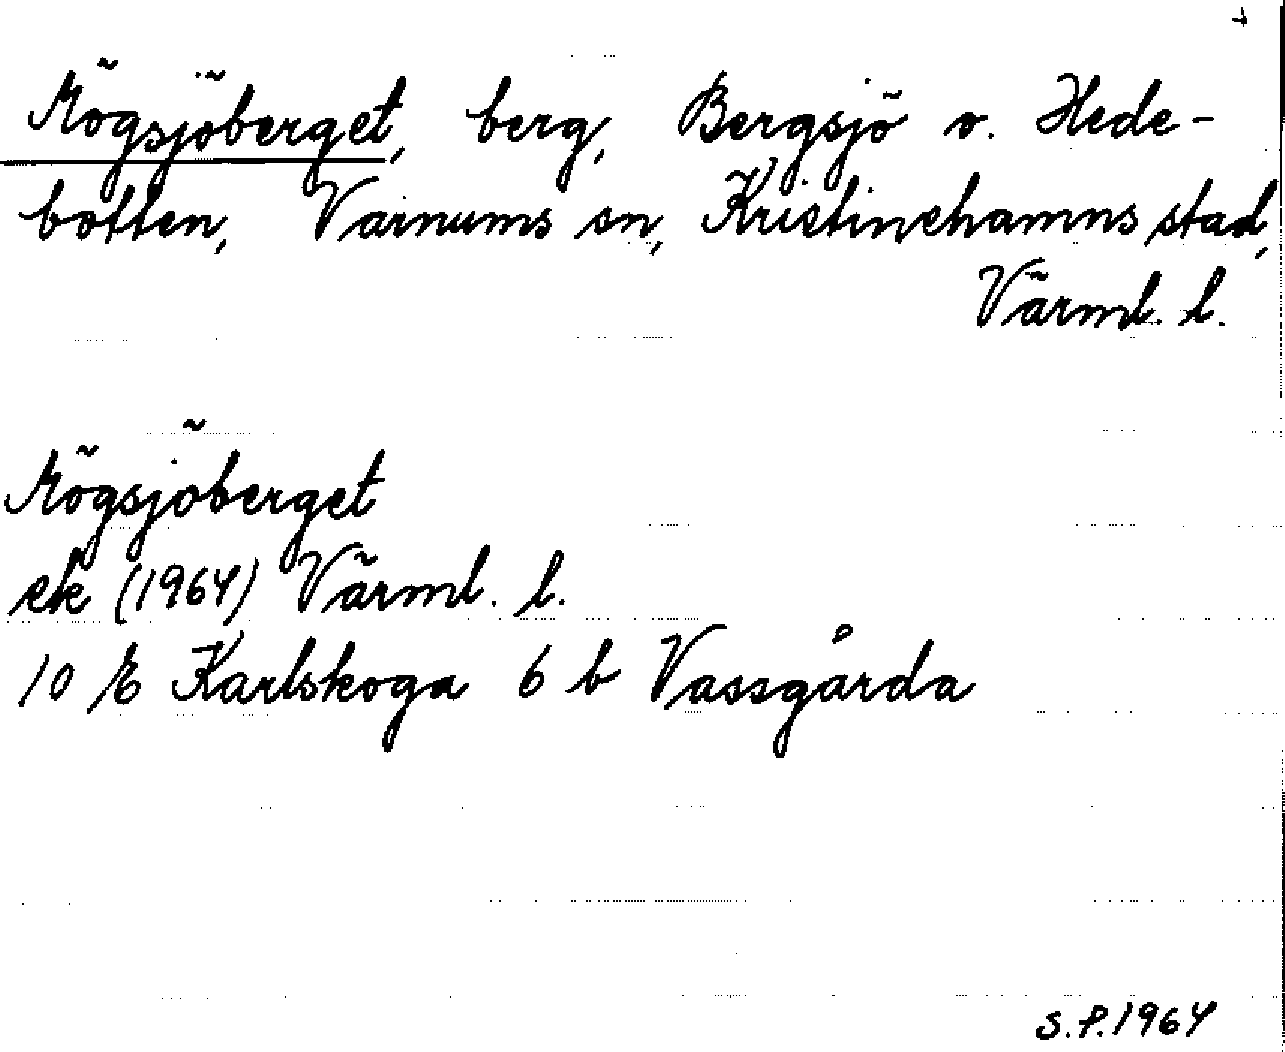 Mögsjöberget, berg, Bergsjö o. Hede-
botten, Varnums sn, Kristinehamns stad,
Värml. l.
Mögsjöberget
ek (1964) Värml. l.
10 E Karlskoga 6 b Vassgårda
S.P. 1964